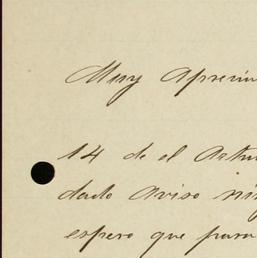 Muy Aprecia
14 de el Actu
dado Aviso nin
espero que para